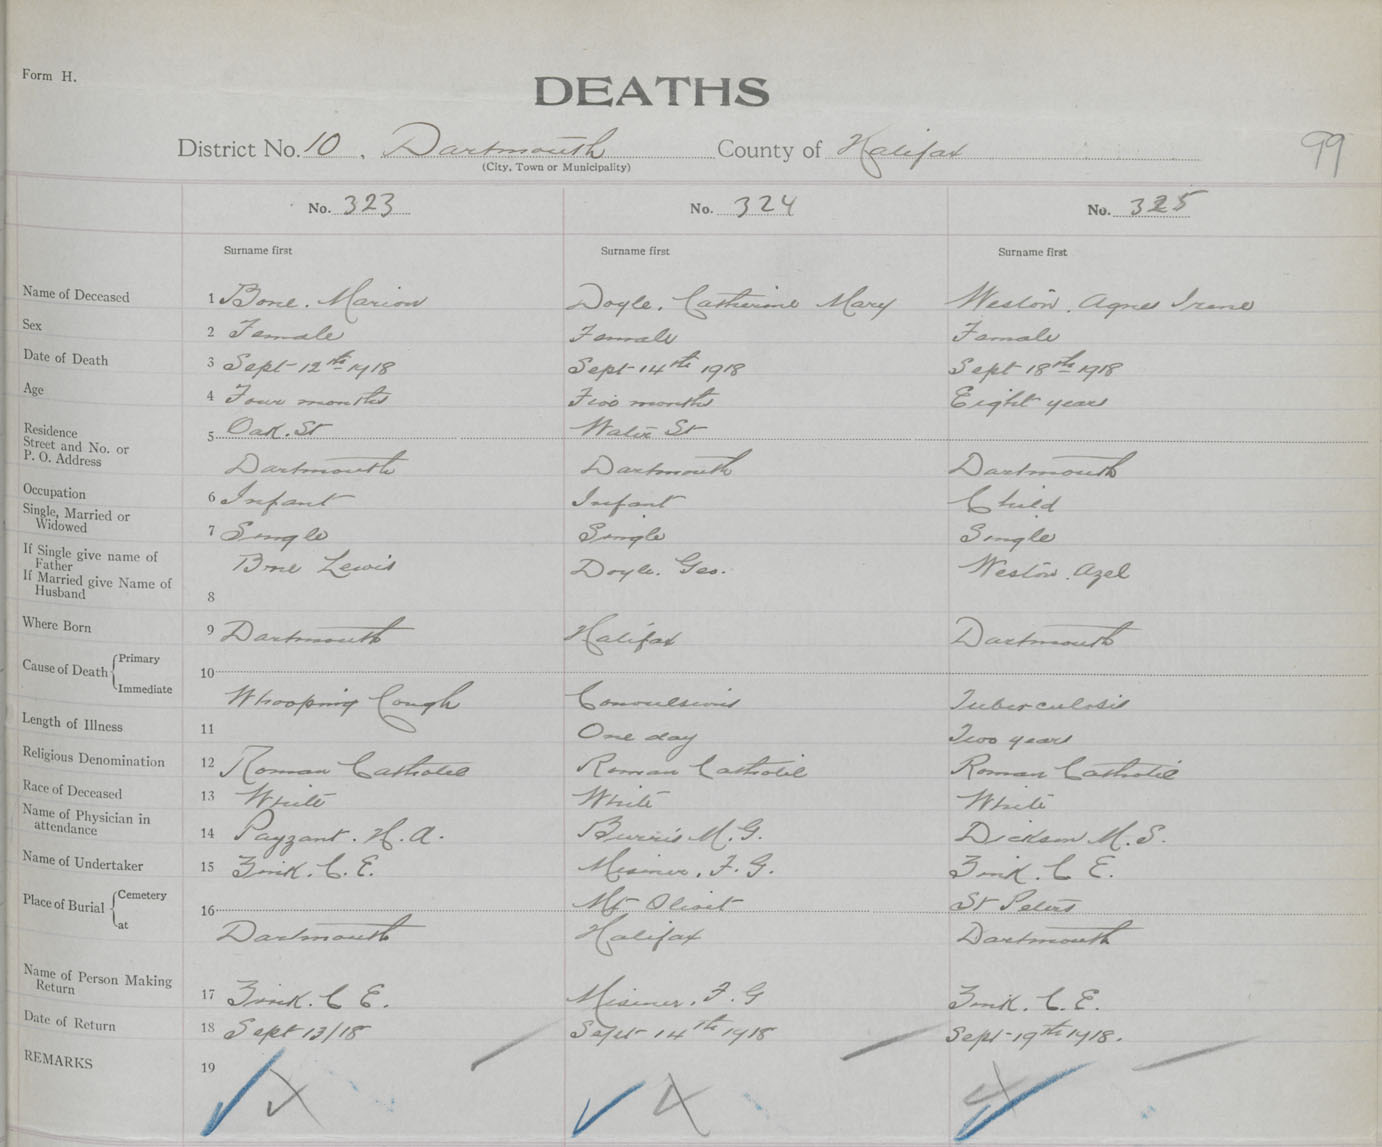 Form H.
DEATHS
District No. 10, Dartmouth County of Halifax 99
(City, Town or Municipality)
No. 323 No. 324 No. 325
Surname first Surname first Surname first
Name of Deceased 1 Bone. Marion Doyle, Catherine Mary Weston, Agnes Irene
Sex 2 Female Female Female
Date of Death 3 Sept-12th 1918 Sept-14th 1918 Sept 18th 1918
Age 4 Four months Two months Eight years
Residence
Street and No. or
P. O. Address
5 Oak. St Water St
Dartmouth Dartmouth Dartmouth
Occupation 6 Infant Infant Child
Single, Married or
Widowed
7 Single Single Single
If Single give name of
Father
Bone Lewis Doyle. Geo. Weston. Azel
If Married give Name of
Husband
8
Where Born 9 Dartmouth Halifax Dartmouth
Cause of Death Primary
Immediate
10
Whooping Cough Convulsions Tuberculosis
Length of Illness 11 One day Two years
Religious Denomination 12 Roman Catholic Roman Catholic Roman Catholic
Race of Deceased 13 White White White
Name of Physician in
attendance
14 Payzant. H. A. Burris M. G. Dickson M. S.
Name of Undertaker 15 Zink. C. E. Misener, F. G. Zink. C E.
Place of Burial Cemetery
at
16 Mt Olivet St Peters
Dartmouth Halifax Dartmouth
Name of Person Making
Return
17 Zink. C E. Misener, F. G Zink. C. E.
Date of Return 18 Sept 13/18 Sept-14th 1918 Sept-19th 1918.
REMARKS 19